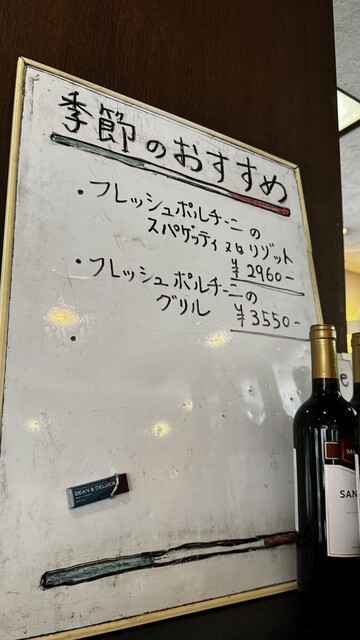 季節のおすすめ
・フレッシュポルチーニの
スパゲッティ又はリゾット
¥2960-
・フレッシュポルチーニの
グリル ¥3550-
DEAN & DELUCA
e
SAN